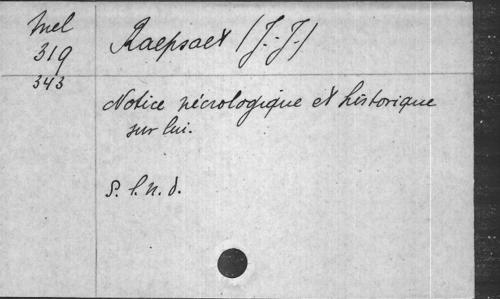 Mel
319
343
Raepsaet (J.-J.)
Notice nécrologique et historique
sur lui.
S. l. n. d.